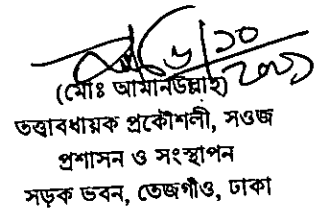 (মোঃ আমানউল্লাহ)
তত্ত্বাবধায়ক প্রকৌশলী, সওজ
প্রশাসন ও সংস্থাপন
সড়ক ভবন, তেজগাঁও, ঢাকা